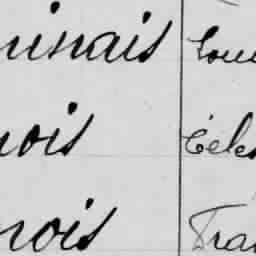 inais Loui
nois Céles
nois Fran